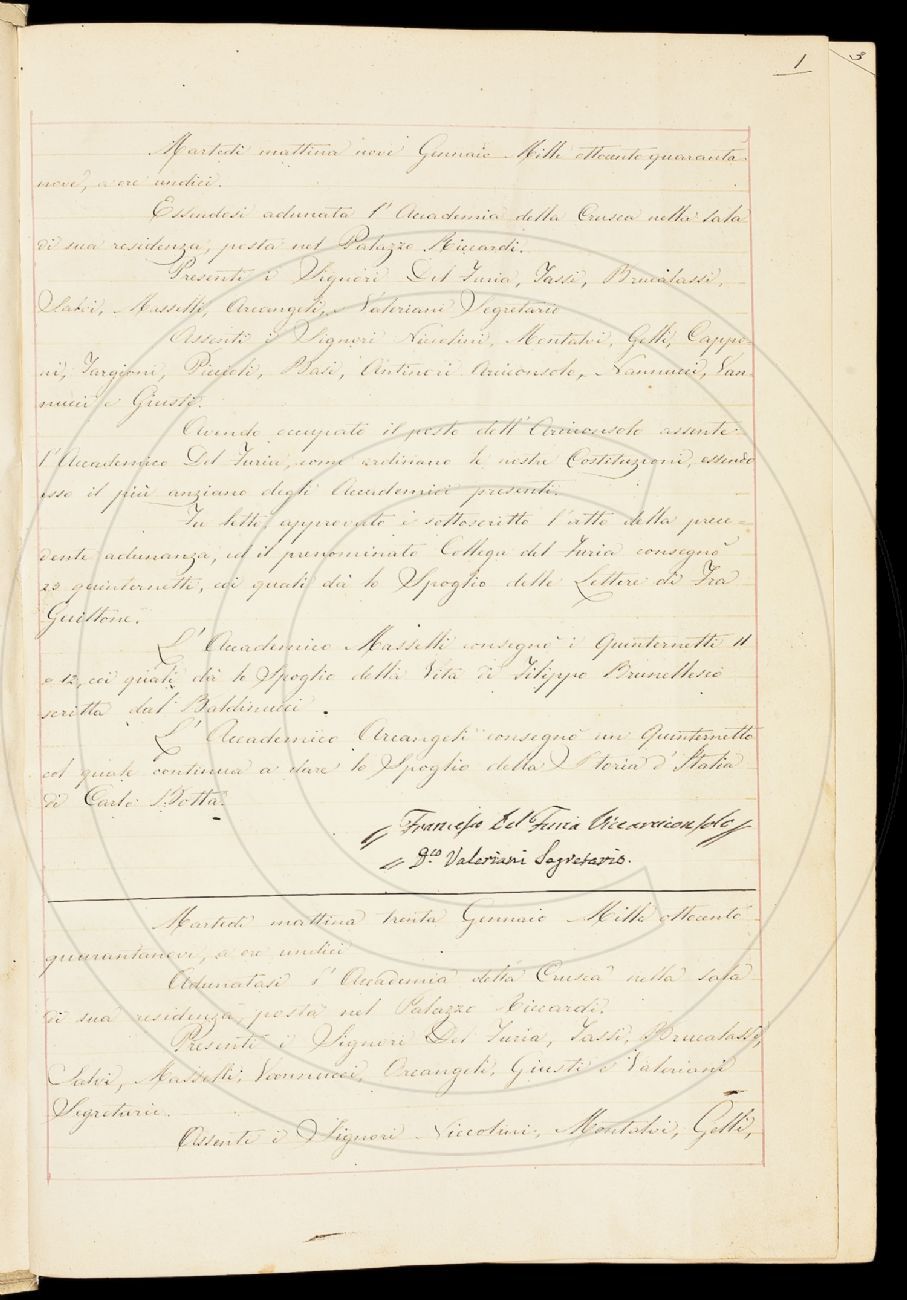 1
3
Martedì mattina nove Gennaio Mille ottocento quaranta
nove, a ore undici.
Essendosi adunata l'Accademia della Crusca nella sala
di sua residenza, posta nel Palazzo Riccardi.
Presenti i Signori Del Furia, Tassi, Brucalassi,
Salvi, Masselli, Arcangeli, Valeriani Segretario
Assenti i Signori Niccolini, Montalvi, Gelli, Cappo-
ni, Targioni, Piccioli, Basi, Antinori Arciconsolo, Nannucci, Van-
nucci e Giusti.
Avendo occupato il posto dell'Arciconsolo assente
l'Accademico Del Furia, come ordinano le nostre Costituzioni, essendo
esso il più anziano degli Accademici presenti.
Fu letto, approvato e sottoscritto l'atto della prece-
dente adunanza, ed il prenominato Collega del Furia consegnò
23 quinternetti, coi quali dà lo Spoglio delle Lettere di Fra
Guittone.
L'Accademico Masselli consegnò i Quinternetti 11
e 12, coi quali dà lo Spoglio della Vita di Filippo Brunellesco
scritta dal Baldinucci.
L'Accademico Arcangeli consegnò un Quinternetto
col quale continua a dare lo Spoglio della Storia d'Italia
di Carlo Botta.
Francesco Del Furia Vicearciconsolo
D.co Valeriani Segretario.
Martedì mattina trenta Gennaio Mille ottocento
quarantanove, a ore undici
Adunatasi l'Accademia della Crusca nella sala
di sua residenza, posta nel Palazzo Riccardi.
Presenti i Signori Del Furia, Tassi, Brucalassi,
Salvi, Masselli, Vannucci, Arcangeli, Giusti e Valeriani
Segretario.
Assenti i Signori Niccolini, Montalvi, Gelli,